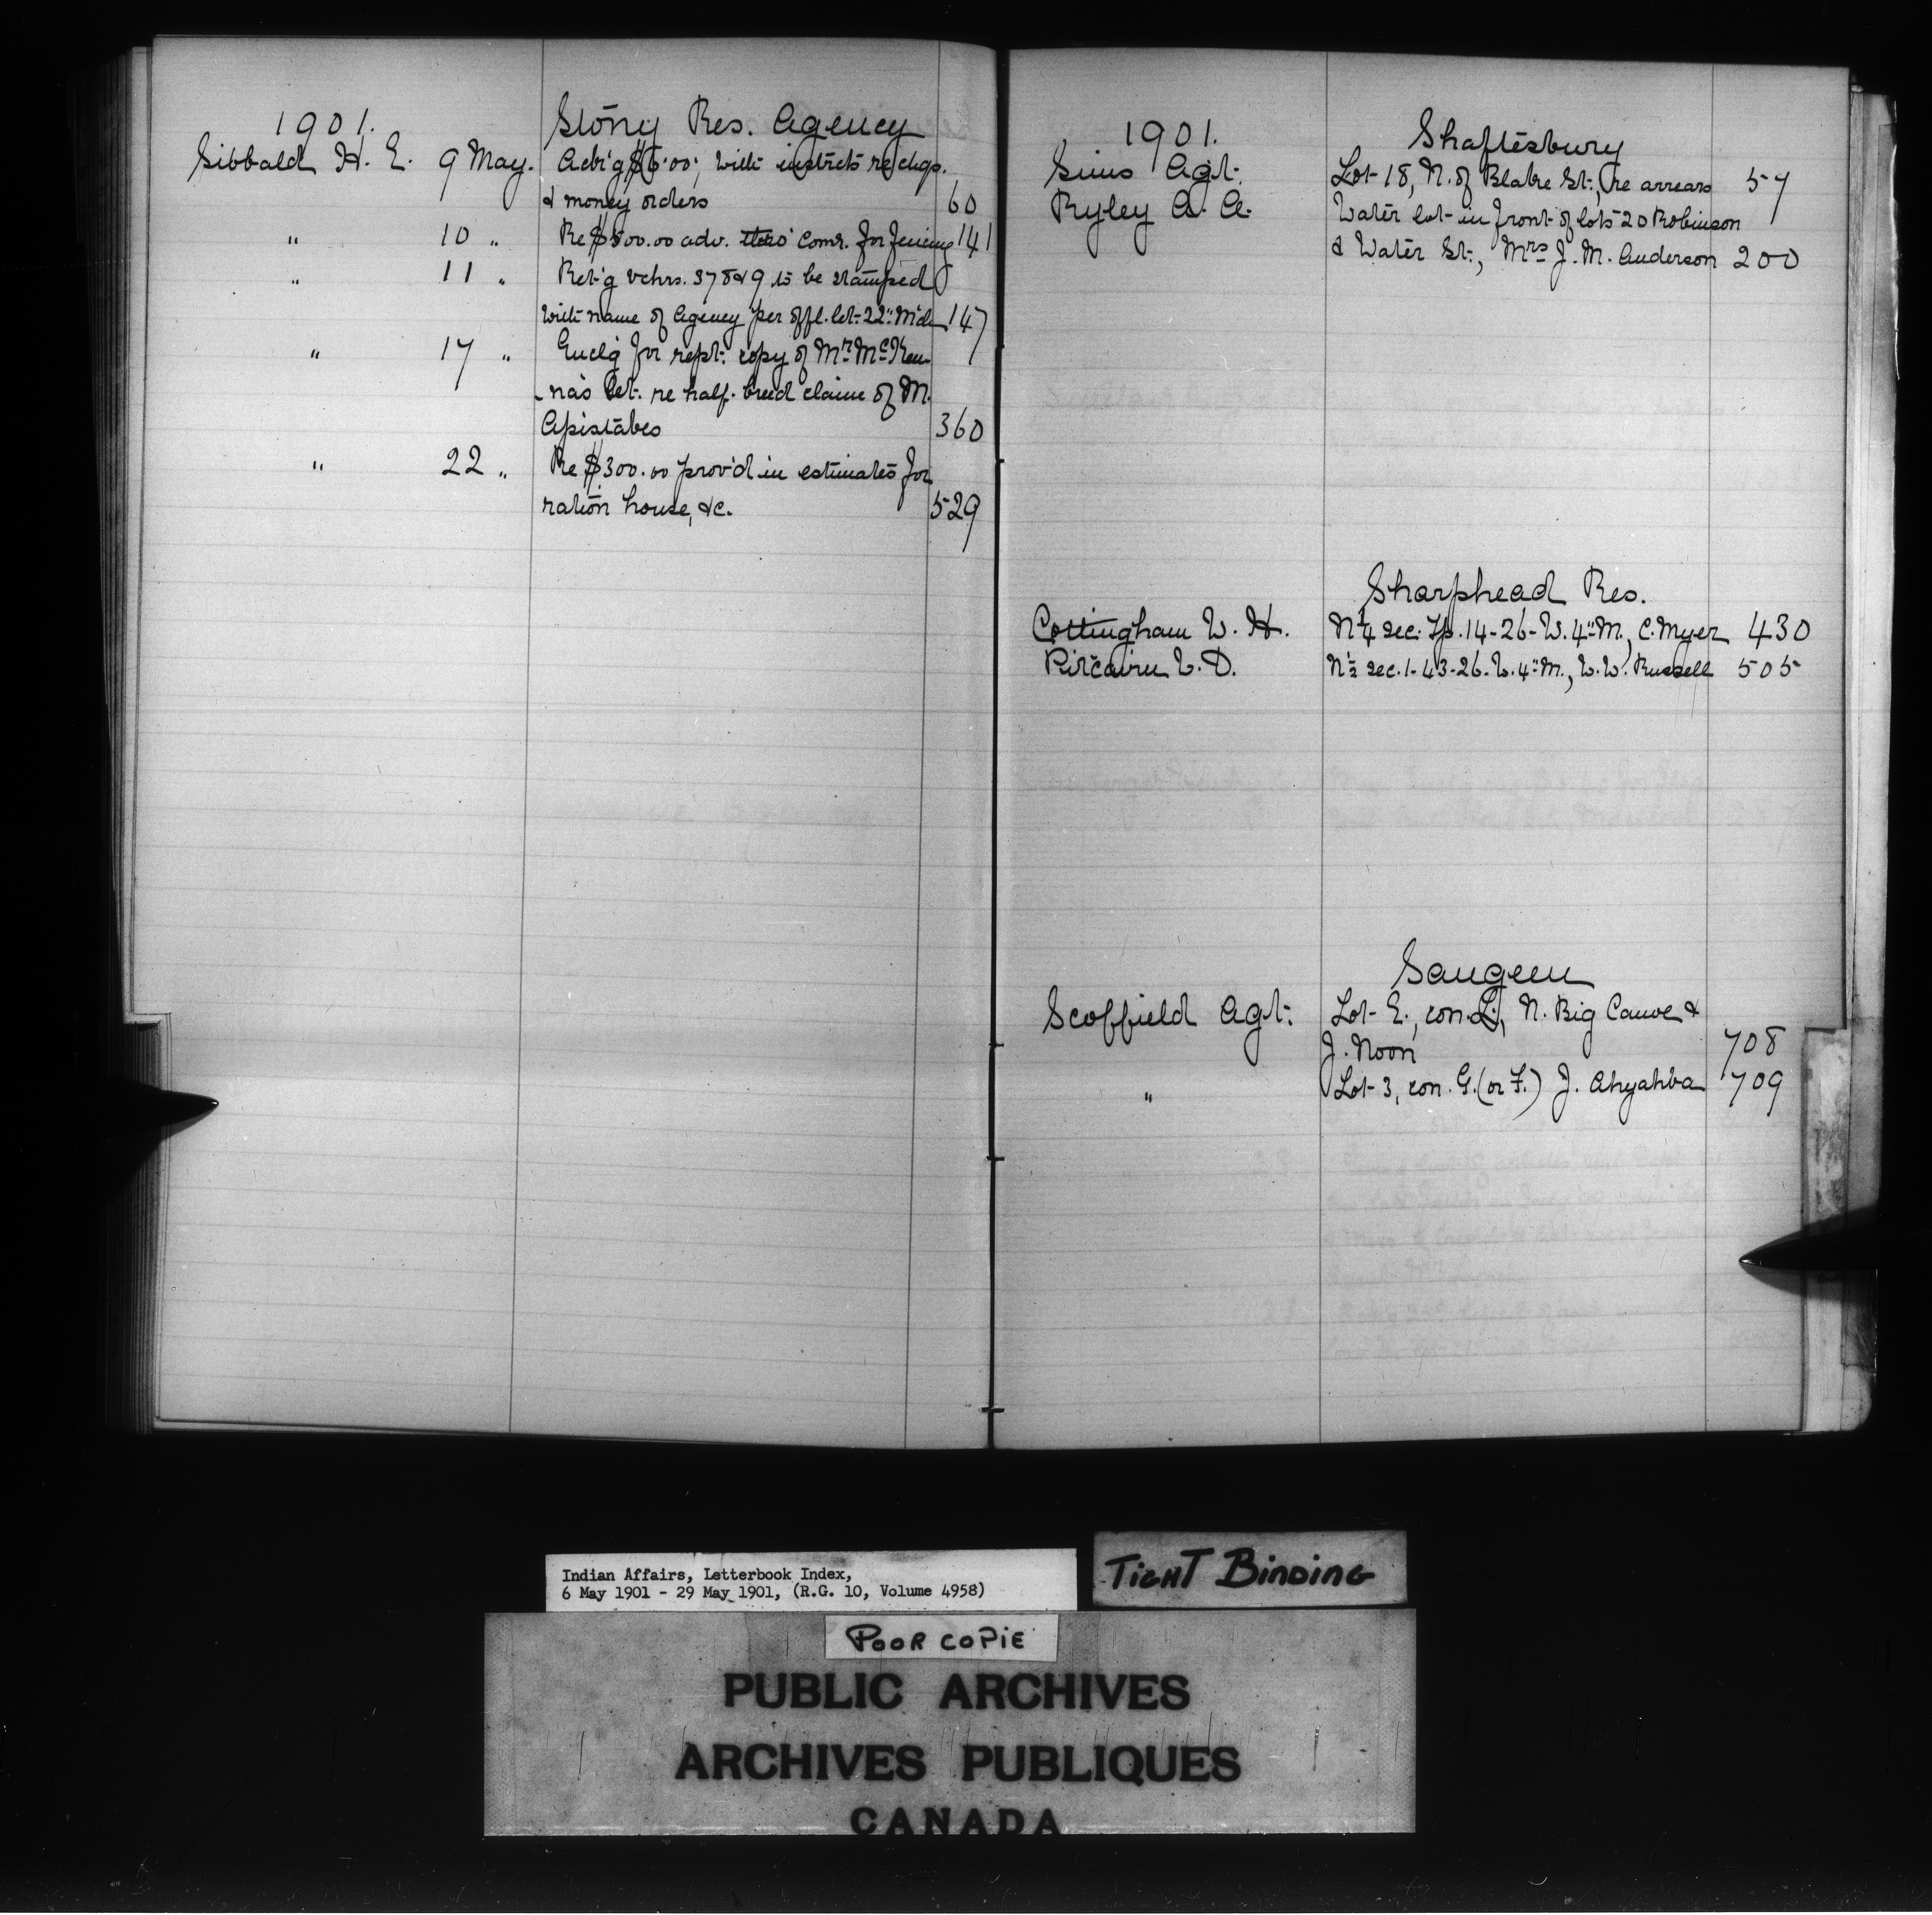 1901. Stony Res. Agency
Sibbald H. E. 9 May. Adv'g $6.00, with instrcts re chqs.
& money orders 60
" 10 " Re $500.00 adv. Comr. for fencing 141
" 11 " Ret'g vchrs. 378 & 9 to be stamped
with name of Agency per offl. let. 22" Mch 147
" 17 " Encl'g for rept. copy of Mr. McKen-
na's let. re half-breed claim of M.
Apistabes 360
" 22 " Re $300.00 prov'd in estimates for
ration house, &c. 529
1901. Shaftesbury
Sims Agt. Lot 18, N. of Blake St., re arrears 57
Ryley G. A. Water lot in front of lots 20 Robinson
& Water St., Mrs J. M. Anderson 200
Sharphead Res.
Cottingham W. H. N¼ sec. Tp. 14-26-W. 4" M., C. Myer 430
Pitcairn W. D. N½ sec. 1-43-26-W. 4" M., W. W. Russell 505
Saugeen
Scoffield Agt. Lot E., con. L., N. Big Canoe &
J. Noon 708
" Lot 3, con. G. (or F.) J. Ahyahba 709
Indian Affairs, Letterbook Index,
6 May 1901 - 29 May 1901, (R.G. 10, Volume 4958)
TIGHT BINDING
POOR COPIE
PUBLIC ARCHIVES
ARCHIVES PUBLIQUES
CANADA